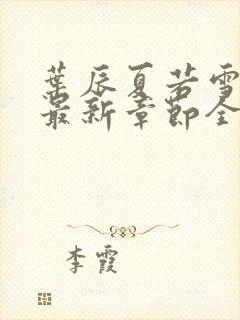 葉辰夏若雪
最新章節全
李霞